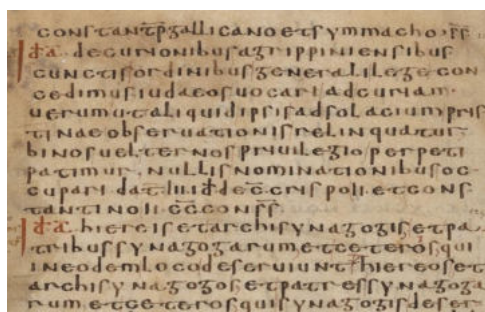 constantp̄ gallicano et symmacho s̄s̄
id̄ā. decurionibus agrippiniensibus
cunctis ordinibus generali lege con
cedimus iudaeos uocari ad curiam.
uerum ut aliquid ipsis ad solacium pris
tinae obseruationis relinquatur.
binos uel ternos priuilegio perpeti
patimur. nullis nominationibus oc
cupari dat. iii id̄ dec̄ crispo ii. et cons
tantino ii. c̄c̄ cons̄s̄
id̄ā. hiereis et archisynagogis et pa
tribus synagogarum et ceteros qui
in eodem loco deseruiunt hiereos et
archisynagogos et patres synagoga
rum et ceteros qui synagogis deser